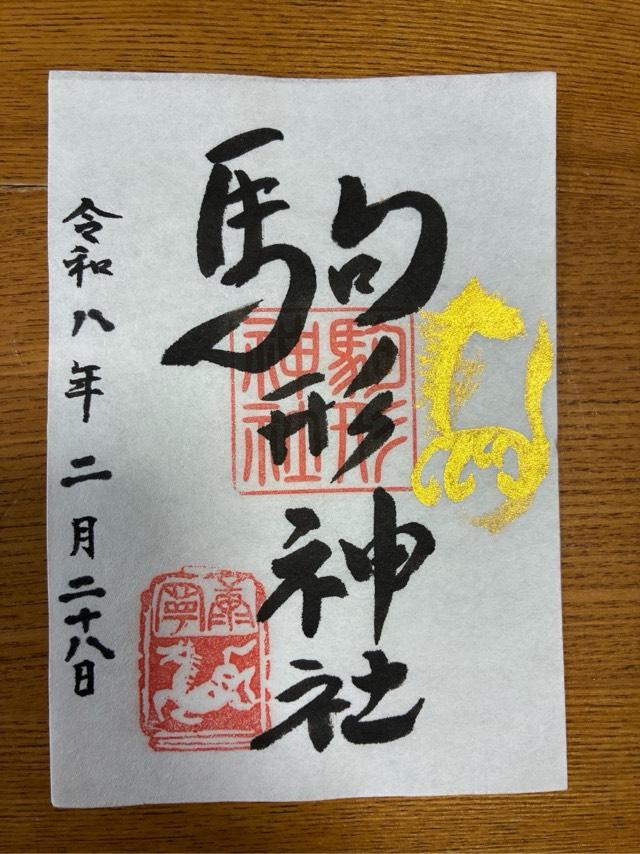 駒形神社
駒形
神社
康寧
令和八年二月二十八日